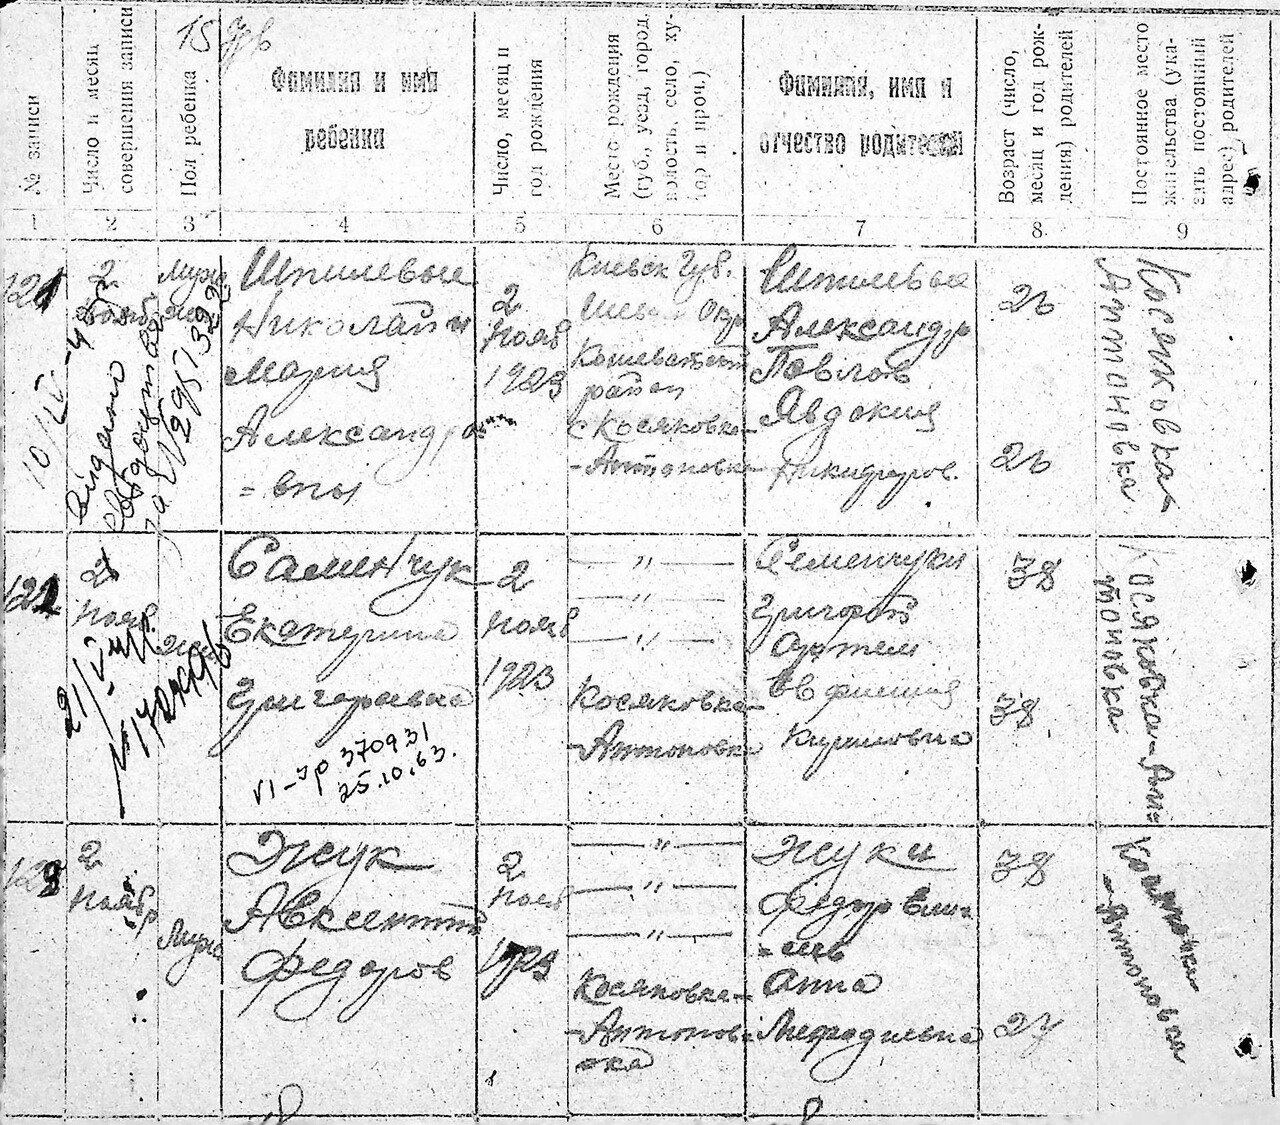 15
№ записи
Число и месяц
совершения записи
Пол ребенка
Фамилия и имя
ребенка
Число, месяц и
год рождения
Место рождения
(губ., уезд, город,
волость, село, ху-
тор и проч.)
Фамилия, имя и
отчество родителей
Возраст (число,
месяц и год рож-
дения) родителей
Постоянное место
жительства (ука-
зать постоянный
адрес) родителей
1 2 3 4 5 6 7 8 9
121
2
Муж
Шпилевые
Николай и
Мария
Александров
= вны
2
Нояб
1923
Киевск Губ.
район
с Косяковка-
-Антоновка
Шпилевые
Александр
Павлов
Явдокия
Никифоров.
26
26
Косяковка-
Антоновка
видано
122
Нояб
Саменчук
Екатерина
Григоревна
VI-ЗР 370931
25.10.63.
2
Нояб
1923
— „ —
— „ —
— „ —
Косяковка-
-Антоновка
Семенчуки
Григорий
Артем
Евфимия
Кириловна
38
38
Косяковка-Ан=
тоновка
123
2
Ноябр
Муж
Жук
Авксентий
Федоров
2
Нояб
1923
— „ —
— „ —
— „ —
Косяковка-
-Антонов-
-ка
Жуки
Федор
Анна
Мефодиевна
38
27
Косяковка
-Антоновка